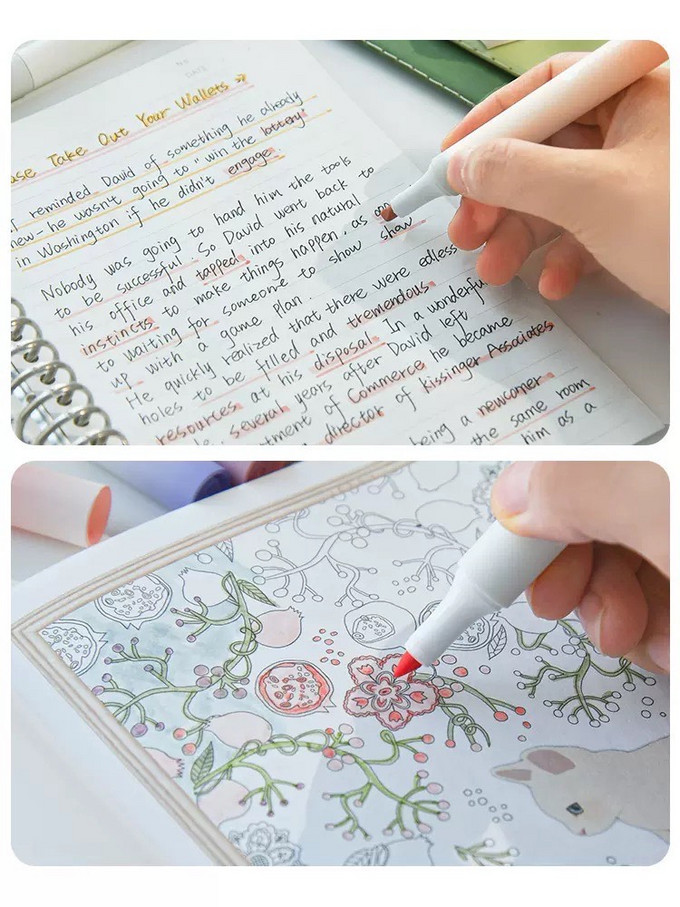 No.
DATE
use Take Out Your Wallets »
I reminded David of something he already
new - he wasn't going to "win the lottery"
in Washington if he didn't engage.
Nobody was going to hand him the tools
to be successful. So David went back to
his office and tapped into his natural
instincts to make things happen, as opp
to waiting for someone to show show
up with a game plan.
He quickly realized that there were edless
holes to be filled and tremendous
resources at his disposal. In a wonderful
several years after David left
tment of Commerce he became
director of Kissinger Associates
being a newcomer
the same room
him as a